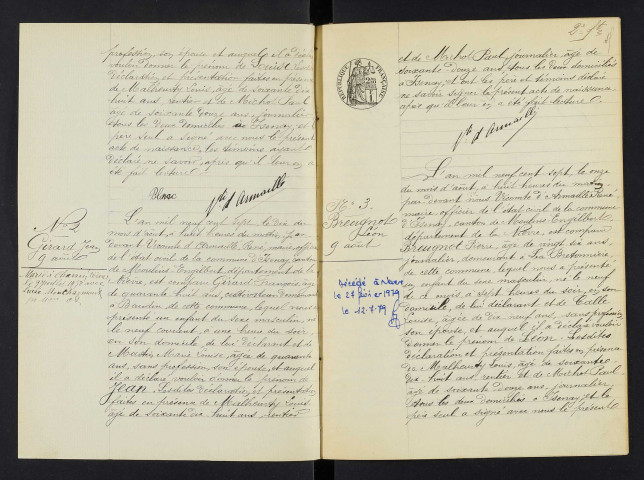 profession, son épouse et auquel il a déclaré
vouloir donner le prénom de Louis. Les dites
déclaration et présentation faites en présence
de Malhenty Louis, âgé de soixante dix
huit ans, rentier et de Michot Paul
âgé de soixante douze ans, journalier
tous les deux domiciliés à Isenay, et le
père seul a signé avec nous le présent
acte de naissance, les témoins ayant
déclaré ne savoir, après qu'il leur en a
été fait lecture
Vte d'Armaillé
No 2
Girard Jean
9 août
Marié à
L'an mil neuf cent sept, le dix du
mois d'août, à huit heures du matin, par
devant Vicomte d'Armaillé René, maire officier
de l'état civil de la commune d'Isenay, canton
de Moulins Engilbert, département de la
Nièvre, est comparu Girard François âgé
de quarante huit ans, cultivateur demeurant
à de cette commune, lequel nous a
présenté un enfant du sexe masculin, né
le neuf courant, à une heure du soir
en son domicile, de lui déclarant et de
Martin Marie Louise âgée de quarante
ans, sans profession, son épouse et auquel
il a déclaré vouloir donner le prénom de
Jean. Les dites déclaration et présentation
faites en présence de Malhenty Louis
âgé de soixante dix huit ans, rentier
et de Michot Paul, journalier âgé de
soixante douze ans, tous les deux domiciliés
à Isenay, et ont les père et témoins déclaré
ne savoir signer le présent acte de naissance
après qu'il leur en a été fait lecture.
RÉPUBLIQUE FRANÇAISE
Vte d'Armaillé
No 3.
Breugnot
Léon
9 août
Décédé à
le 27 1979
le 12-7-79
L'an mil neuf cent sept, le onze
du mois d'août, à huit heures du matin,
par devant nous Vicomte d'Armaillé René,
maire, officier de l'état civil de la commune
d'Isenay, canton de Moulins Engilbert,
département de la Nièvre, est comparu
Breugnot Pierre, âgé de vingt six ans,
journalier, demeurant à La Bretonnière,
de cette commune, lequel nous a présenté
un enfant du sexe masculin, né le neuf
de ce mois, à sept heures du soir, en son
domicile, de lui déclarant et de Calle
Louise, âgée de dix neuf ans, sans profession
son épouse, et auquel il a déclaré vouloir
donner le prénom de Léon. Les dites
déclaration et présentation faites en présence
de Malhenty Louis, âgé de soixante
dix huit ans, rentier et de Michot Paul,
âgé de soixante douze ans, journalier
tous les deux domiciliés à Isenay et le
père seul a signé avec nous le présent